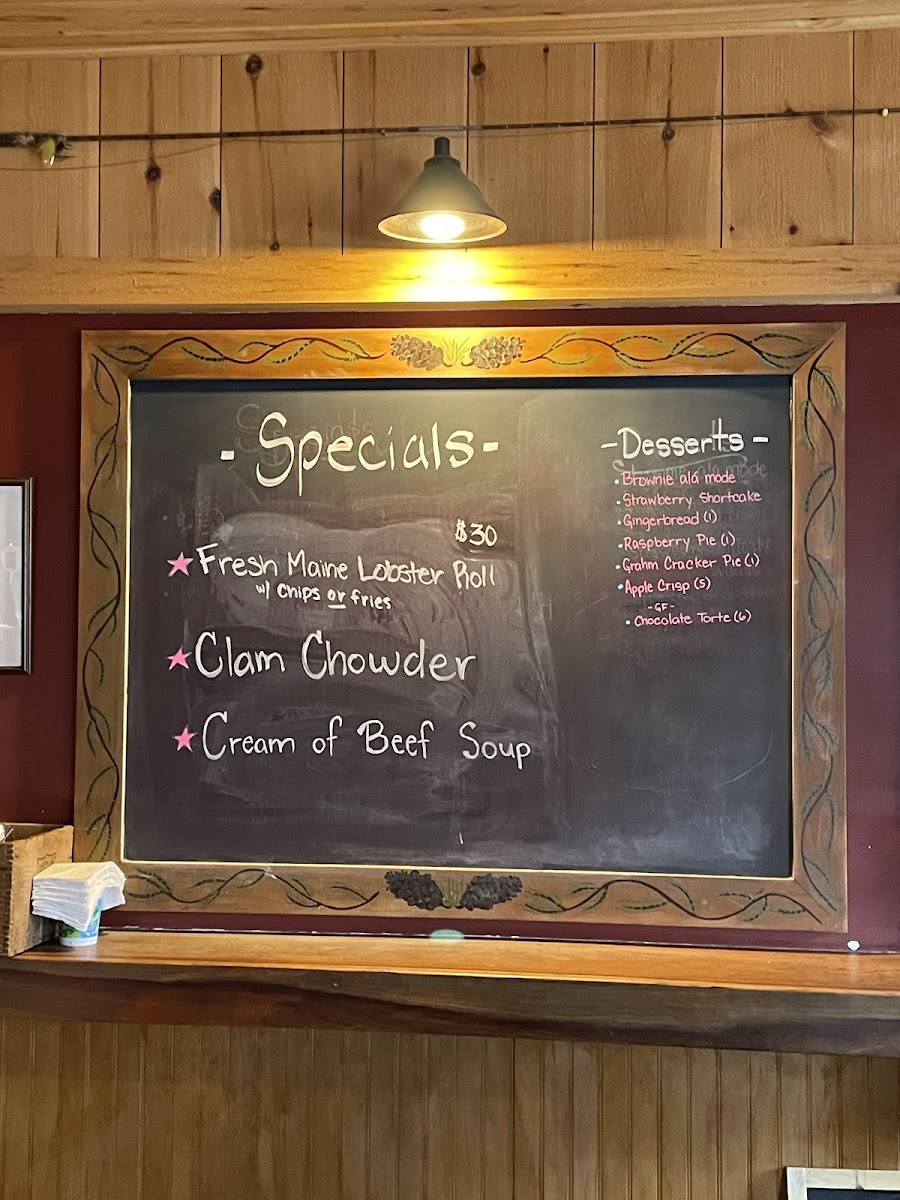 - Specials -
$30
★ Fresh Maine Lobster Roll
w/ chips or fries
★ Clam Chowder
★ Cream of Beef Soup
- Desserts -
• Brownie ala mode
• Strawberry Shortcake
• Gingerbread (1)
• Raspberry Pie (1)
• Grahm Cracker Pie (1)
• Apple Crisp (5)
- GF -
• Chocolate Torte (6)